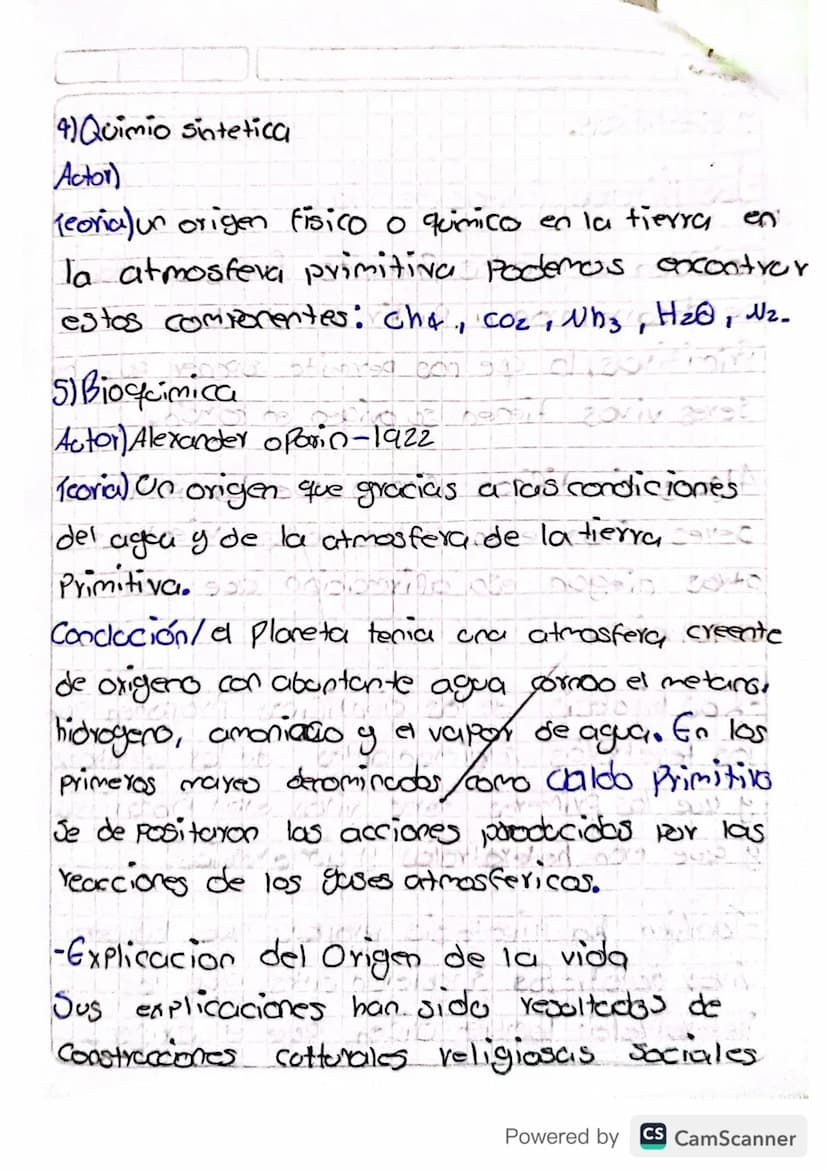 4) Quimio sintetica
Actor)
Teoria) un origen fisico o quimico en la tierra en
la atmosfera primitiva Podemos encontrar
estos componentes: Ch4, CO2, Nh3, H2O, N2.
5) Bioquimica
Actor) Alexander oparin-1922
Teoria) Un origen que gracias a las condiciones
del agua y de la atmosfera de la tierra
Primitiva.
Conclución/ el Planeta tenia una atmosfera creente
de oxigeno con abuntante agua como el metano,
hidrogeno, amoniaco y el vapor de agua. En los
primeros mares denominados como Caldo Primitivo
Se de positaron las acciones producidas por las
reacciones de los gases atmosfericos.
-Explicacion del Origen de la vida
Sus explicaciones han sido resultados de
Construcciones culturales religiosas Sociales
Powered by CS CamScanner